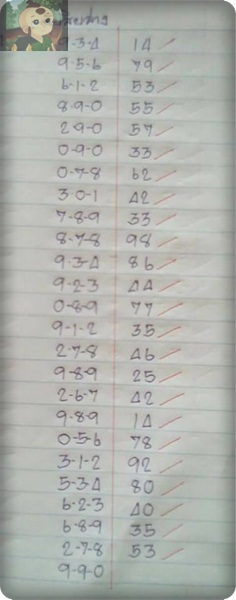 -3-4 14
9-5-6 79
6-1-2 53
8-9-0 55
2-9-0 57
0-9-0 33
0-7-8 62
3-0-1 42
7-8-9 33
8-7-8 98
9-3-4 86
9-2-3 44
0-8-9 77
9-1-2 35
2-7-8 46
9-8-9 25
2-6-7 42
9-8-9 14
0-5-6 78
3-1-2 92
5-3-4 80
6-2-3 40
6-8-9 35
2-7-8 53
9-9-0